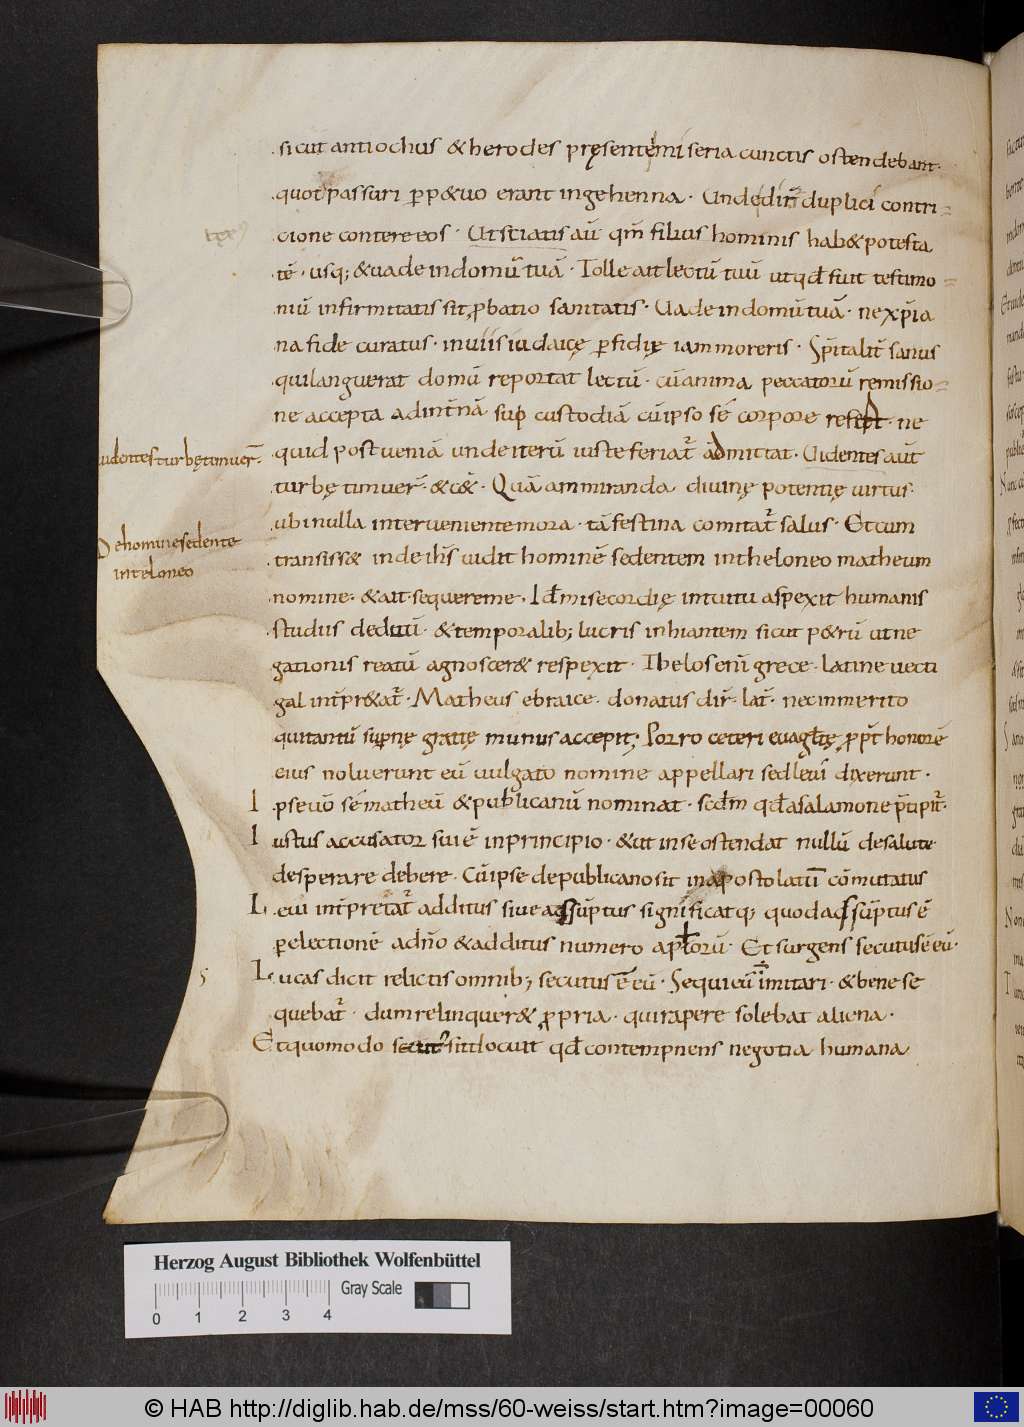 sicut antiochus & herodes pręsenté miseria cunctis ostendebant.
quot passuri ꝑp&uo erant ingehenna. Unde dir̄ duplici contri
cione contere eos. Ut sciatis aū qm̄ filius hominis hab& potesta
tē. usq; & uade in domū tuā. Tolle ait lectū tuū ut qđ fuit testimo
niū infirmitatis sit ꝓbatio sanitatis. Uade in domū tuā. ne xp̄ia
na fide curatus. in uiis iudaicę ꝑfidię iam moreris. Sp̄italit̄ sanus
qui languerat domū reportat lectū. cū anima peccatorū remissio
ne accepta ad int̄nā sup custodiā cū ipso sē corpore refert. ne
quid post ueniā unde iterū iuste feriat̄ admittat. Uidentes aūt
turbę timuer̄. & c&. Quā ammiranda diuinę potentię uirtus.
ubi nulla interueniente mora. tā festina comitat̄ salus. Et cum
transiss& inde ihs̄ uidit hominē sedentem in theloneo matheum
nomine. & ait. sequere me. Id ē misecordię intuitu aspexit humanis
studiis deditū. & temporalib; lucris inhiantem sicut p&rū ut ne
gationis reatū agnoscer& respexit. Thelos enī grece. latine uecti
gal int̄pr&at̄. Matheus ebraice. donatus dir̄. lat̄. nec inmerito
qui tantū supnę gratię munus accepit; Porro ceteri euagl̄tę ꝓpt̄ honorē
eius noluerunt eū uulgato nomine appellari sed leuī dixerunt.
Ipse uō sē matheū & publicanū nominat. scd̄m qđ a salamone p̄cipit̄.
Iustus accusator sui ē in principio. & ut in se ostendat nullū de salute
desperare debere. Cū ipse de publicano sit in apostolatū cōmutatus
Leui int̄pretat̄ additus siue assūptus significatq; quod assūptus ē
ꝑ electionē a dn̄o & additus numero aptorū. Et surgens secutus ē eū.
Lucas dicit relictis omnib; secutus ē eū. Sequi eū imitari. & bene se
quebat̄. dum relinquer& ꝓpria. qui rapere solebat aliena.
Et quomodo sit locuit qđ contempnens negotia humana
uidentes turbę timuer̄.
De homine sedente
in teloneo
Herzog August Bibliothek Wolfenbüttel
Gray Scale
0 1 2 3 4
© HAB http://diglib.hab.de/mss/60-weiss/start.htm?image=00060